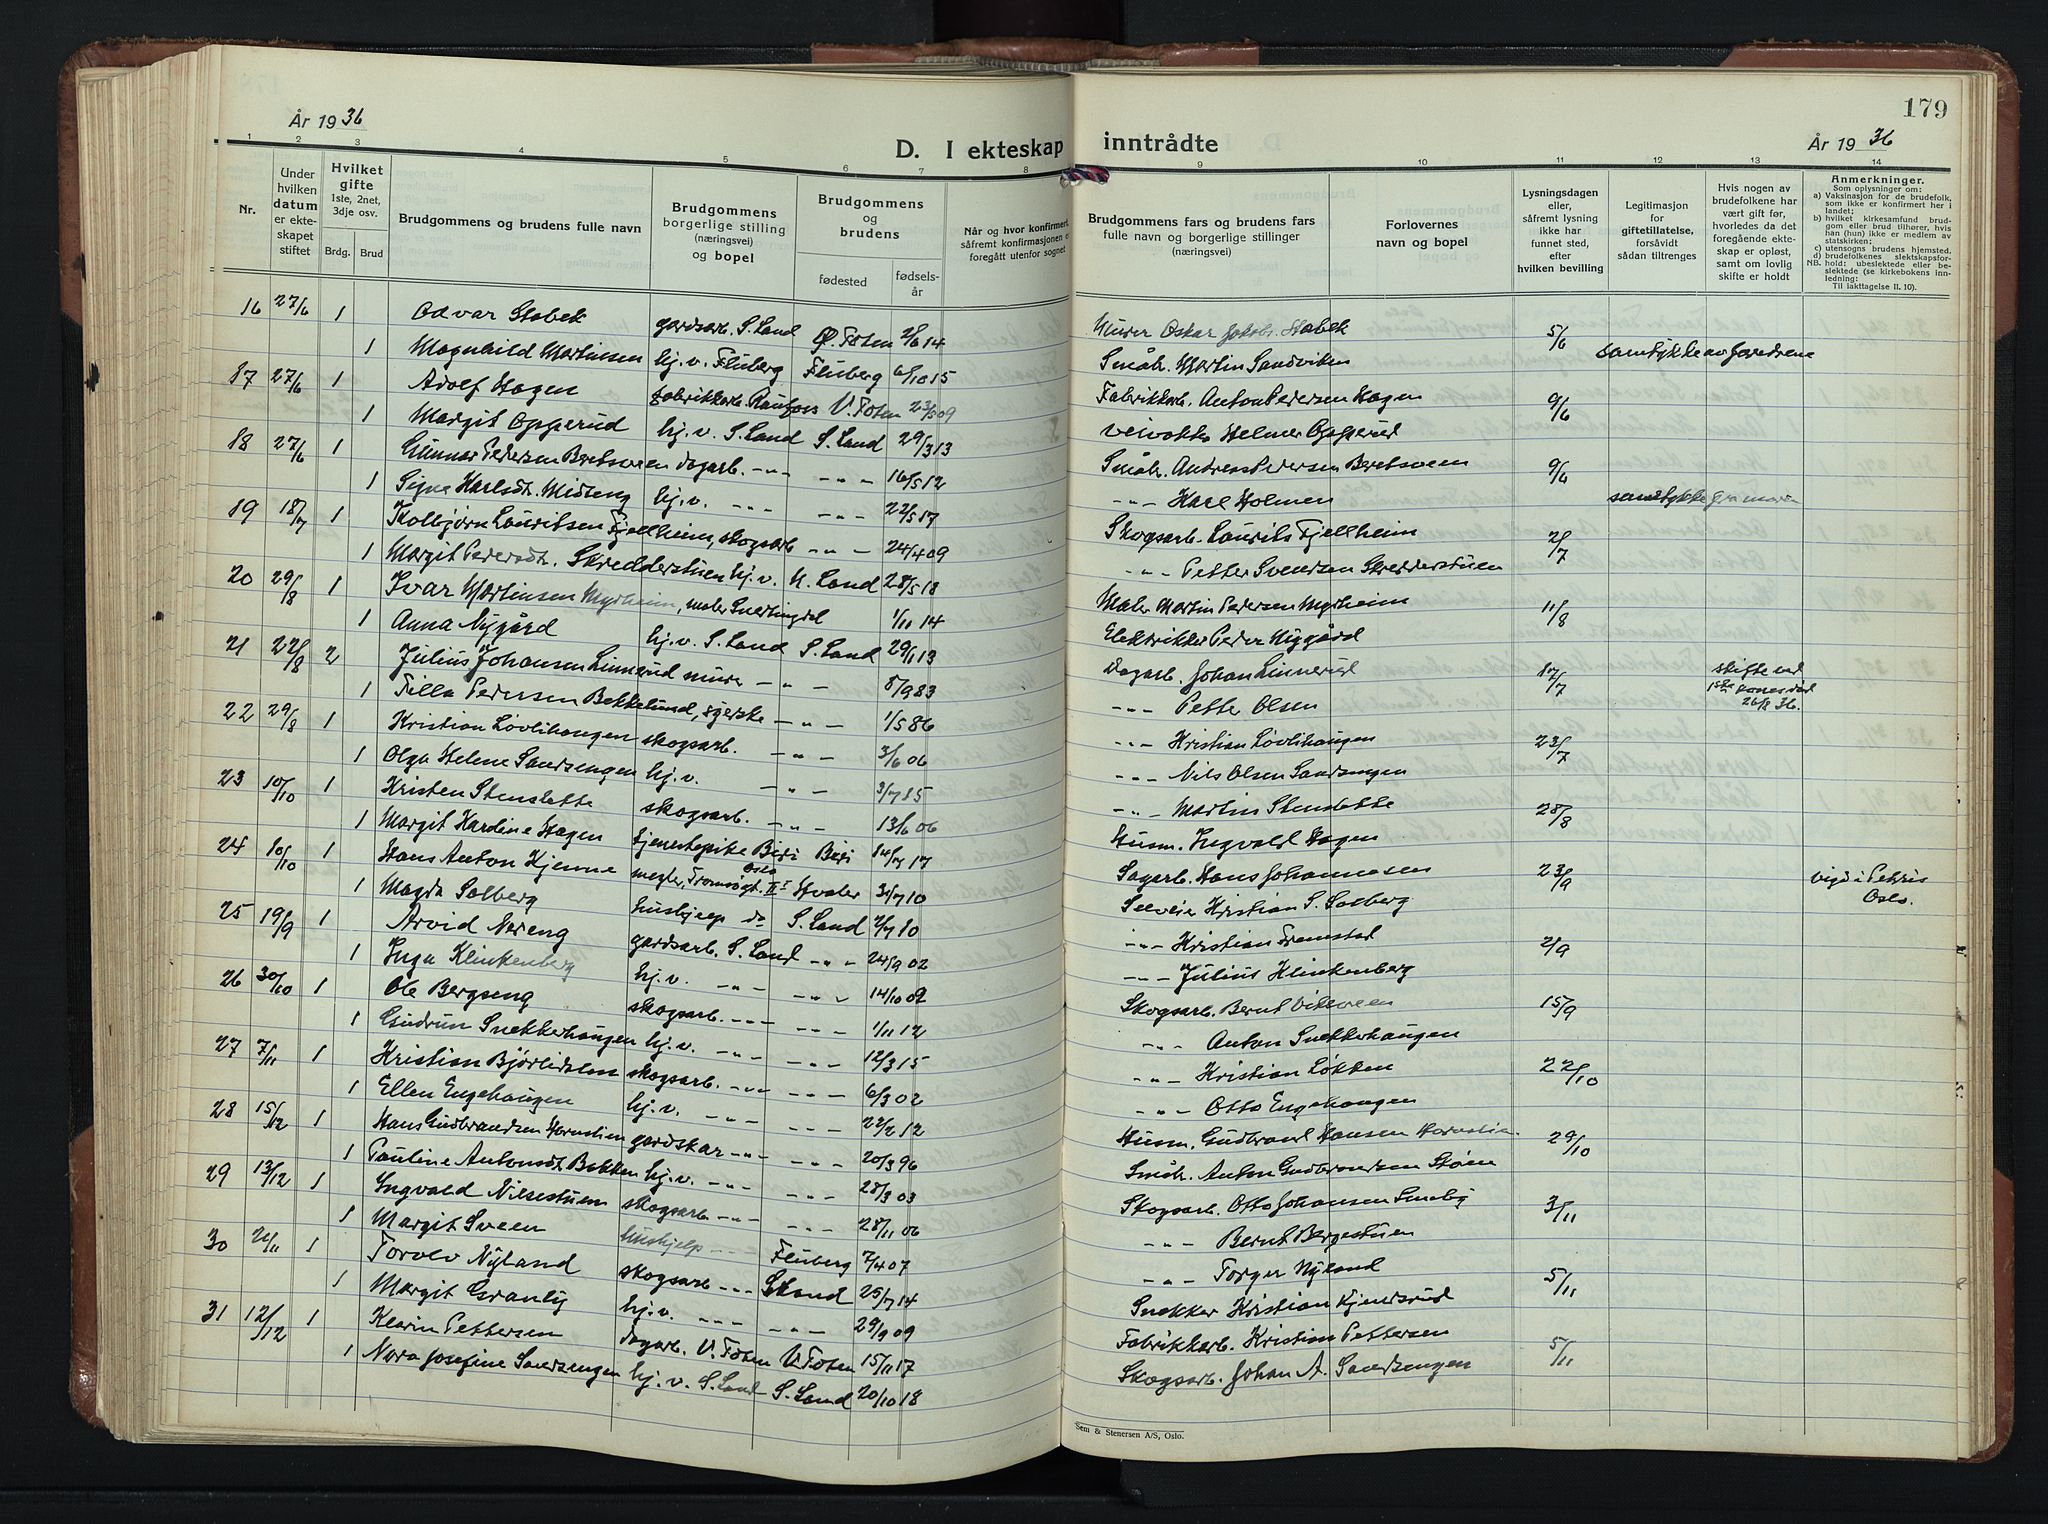 179
År 1936
D. I ekteskap inntrådte
År 1936
1 2 3 4 5 6 7 8 9 10 11 12 13 14
Nr.
Under hvilken datum er ekteskapet stiftet
Hvilket gifte 1ste, 2net, 3dje osv.
Brdg. Brud
Brudgommens og brudens fulle navn
Brudgommens borgerlige stilling (næringsvei) og bopel
Brudgommens og brudens
fødested
fødselsår
Når og hvor konfirmert, såfremt konfirmasjonen er foregått utenfor sognet
Brudgommens fars og brudens fars fulle navn og borgerlige stillinger (næringsvei)
Forlovernes navn og bopel
Lysningsdagen eller, såfremt lysning ikke har funnet sted, efter hvilken bevilling
Legitimasjon for giftetillatelse, forsåvidt sådan tiltrenges
Hvis nogen av brudefolkene har vært gift før, hvorledes da det foregående ekteskap er opløst, samt om lovlig skifte er holdt
Anmerkninger.
Som oplysninger om:
a) Vaksinasjon for de brudefolk, som ikke er konfirmert her i landet;
b) hvilket kirkesamfund brudgom eller brud tilhører, hvis han (hun) ikke er medlem av statskirken;
c) utensogns brudens hjemsted.
d) brudefolkenes slektskapsforhold: ubeslektede eller beslektede (se kirkebokens innledning:
NB. Til iakttagelse II. 10).
16 27/6 1 Odvar Stabek gardsarb. S. Land Ø. Toten 2/6 14 Murer Oskar Jakobs. Stabek 5/6
1 Magnhild Martinsen hj. v. Fluberg Fluberg 6/10 15 Småbr. Martin Sandviken samtykke av foreldrene
17 27/6 1 Adolf Hagen fabrikkarb. Raufoss V. Toten 23/5 09 Fabrikkarb. Anton Pedersen Hagen 9/6
1 Margit Opperud hj. v. S. Land S. Land 29/3 13 Veivokter Helmer Opperud
18 27/6 1 Gunnar Pedersen Bretsveen dagarb. -"- -"- 16/5 12 Småbr. Andreas Pedersen Beretsveen 9/6
1 Signe Karlsdt. Midteng hj. v. -"- -"- 22/5 17 -"- Karl Holmen samtykke fra moren
19 18/7 1 Kolbjørn Lauritsen Fjellheim, skogsarb -"- 24/4 09 Skogsarb. Laurits Fjellheim 2/7
1 Margit Pedersdt. Skredderstuen hj. v. N. Land 28/5 18 -"- Petter Svendsen Skredderstuen
20 29/8 1 Ivar Martinsen Myrheim, maler Snertingdal 1/11 14 Maler Martin Pedersen Myrheim 11/8
1 Anna Nygård hj. v. S. Land S. Land 29/1 13 Elektriker Peder Nygård
21 22/8 2 Julius Johansen Linnerud murer -"- 8/9 83 Dagarb. Johan Linnerud 17/7 skifte ved 1ste kones død 26/8 36.
1 Tilla Pedersen Bekkelund, syerske -"- 1/5 86 -"- Petter Olsen
22 29/8 1 Kristian Løvlihaugen skogsarb. -"- 3/6 06 -"- Kristian Løvlihaugen 23/7
1 Olga Helene Sandsengen hj. v. -"- 3/7 15 -"- Nils Olsen Sandsengen
23 10/10 1 Kristen Stenslette skogsarb. -"- 13/6 06 -"- Martin Stenslette 28/8
1 Margit Hardine Hagen tjenestepike Biri Biri 14/7 17 Husm. Ingvald Hagen
24 10/10 1 Hans Anton Kjenne megler, Tromsøgt. II I Oslo Hvaler 31/7 10 Sagarb. Hans Johannesen 23/9 vigd i Petrus Oslo.
1 Magda Solberg hushjelp do S. Land 2/7 10 Selveier Kristian S. Solberg
25 19/9 1 Arvid Nereng gardsarb. S. Land -"- 24/9 02 -"- Kristian Framstad 2/9
1 Inga Klinkenberg hj. v. -"- -"- 14/10 09 -"- Julius Klinkenberg
26 30/10 1 Ole Bergseng skogsarb. -"- -"- 1/11 12 Skogsarb. Bernt Vikeveen 15/9
1 Gudrun Snekkerhaugen hj. v. -"- -"- 12/3 15 -"- Anton Snekkerhaugen
27 7/11 1 Kristian Bjørlidalen skogsarb. -"- -"- 6/3 02 -"- Kristian Løkken 22/10
1 Ellen Engehaugen hj. v. -"- -"- 22/2 12 -"- Otto Engehaugen
28 15/12 1 Hans Gudbrandsen Hornstien gardskar -"- -"- 20/3 96 Husm. Gudbrand Hansen Hornstien 29/10
1 Pauline Antonsdt Bakken hj. v. -"- -"- 28/3 03 Småbr. Anton Gudbrandsen Støen
29 13/12 1 Ingvald Nilsestuen skogsarb. -"- -"- 28/11 06 Skogsarb. Otto Johansen Smeby 3/11
1 Margit Sveen hushjelp -"- Fluberg 7/4 07 -"- Bernt Bergestuen
30 21/11 1 Torolv Nyland skogsarb -"- S Land 25/7 14 -"- Torger Nyland 5/11
1 Margit Granly hj. v. -"- -"- 29/9 09 Snekker Kristian Kjendsrud
31 12/12 1 Klarin Pettersen dagarb. V. Toten V. Toten 15/11 17 Fabrikkarb. Kristian Pettersen 5/11
1 Nora Josefine Sandsengen hj. v. S. Land S. Land 20/10 18 Skogsarb. Johan A. Sandsengen
Sem & Stenersen A/S, Oslo.